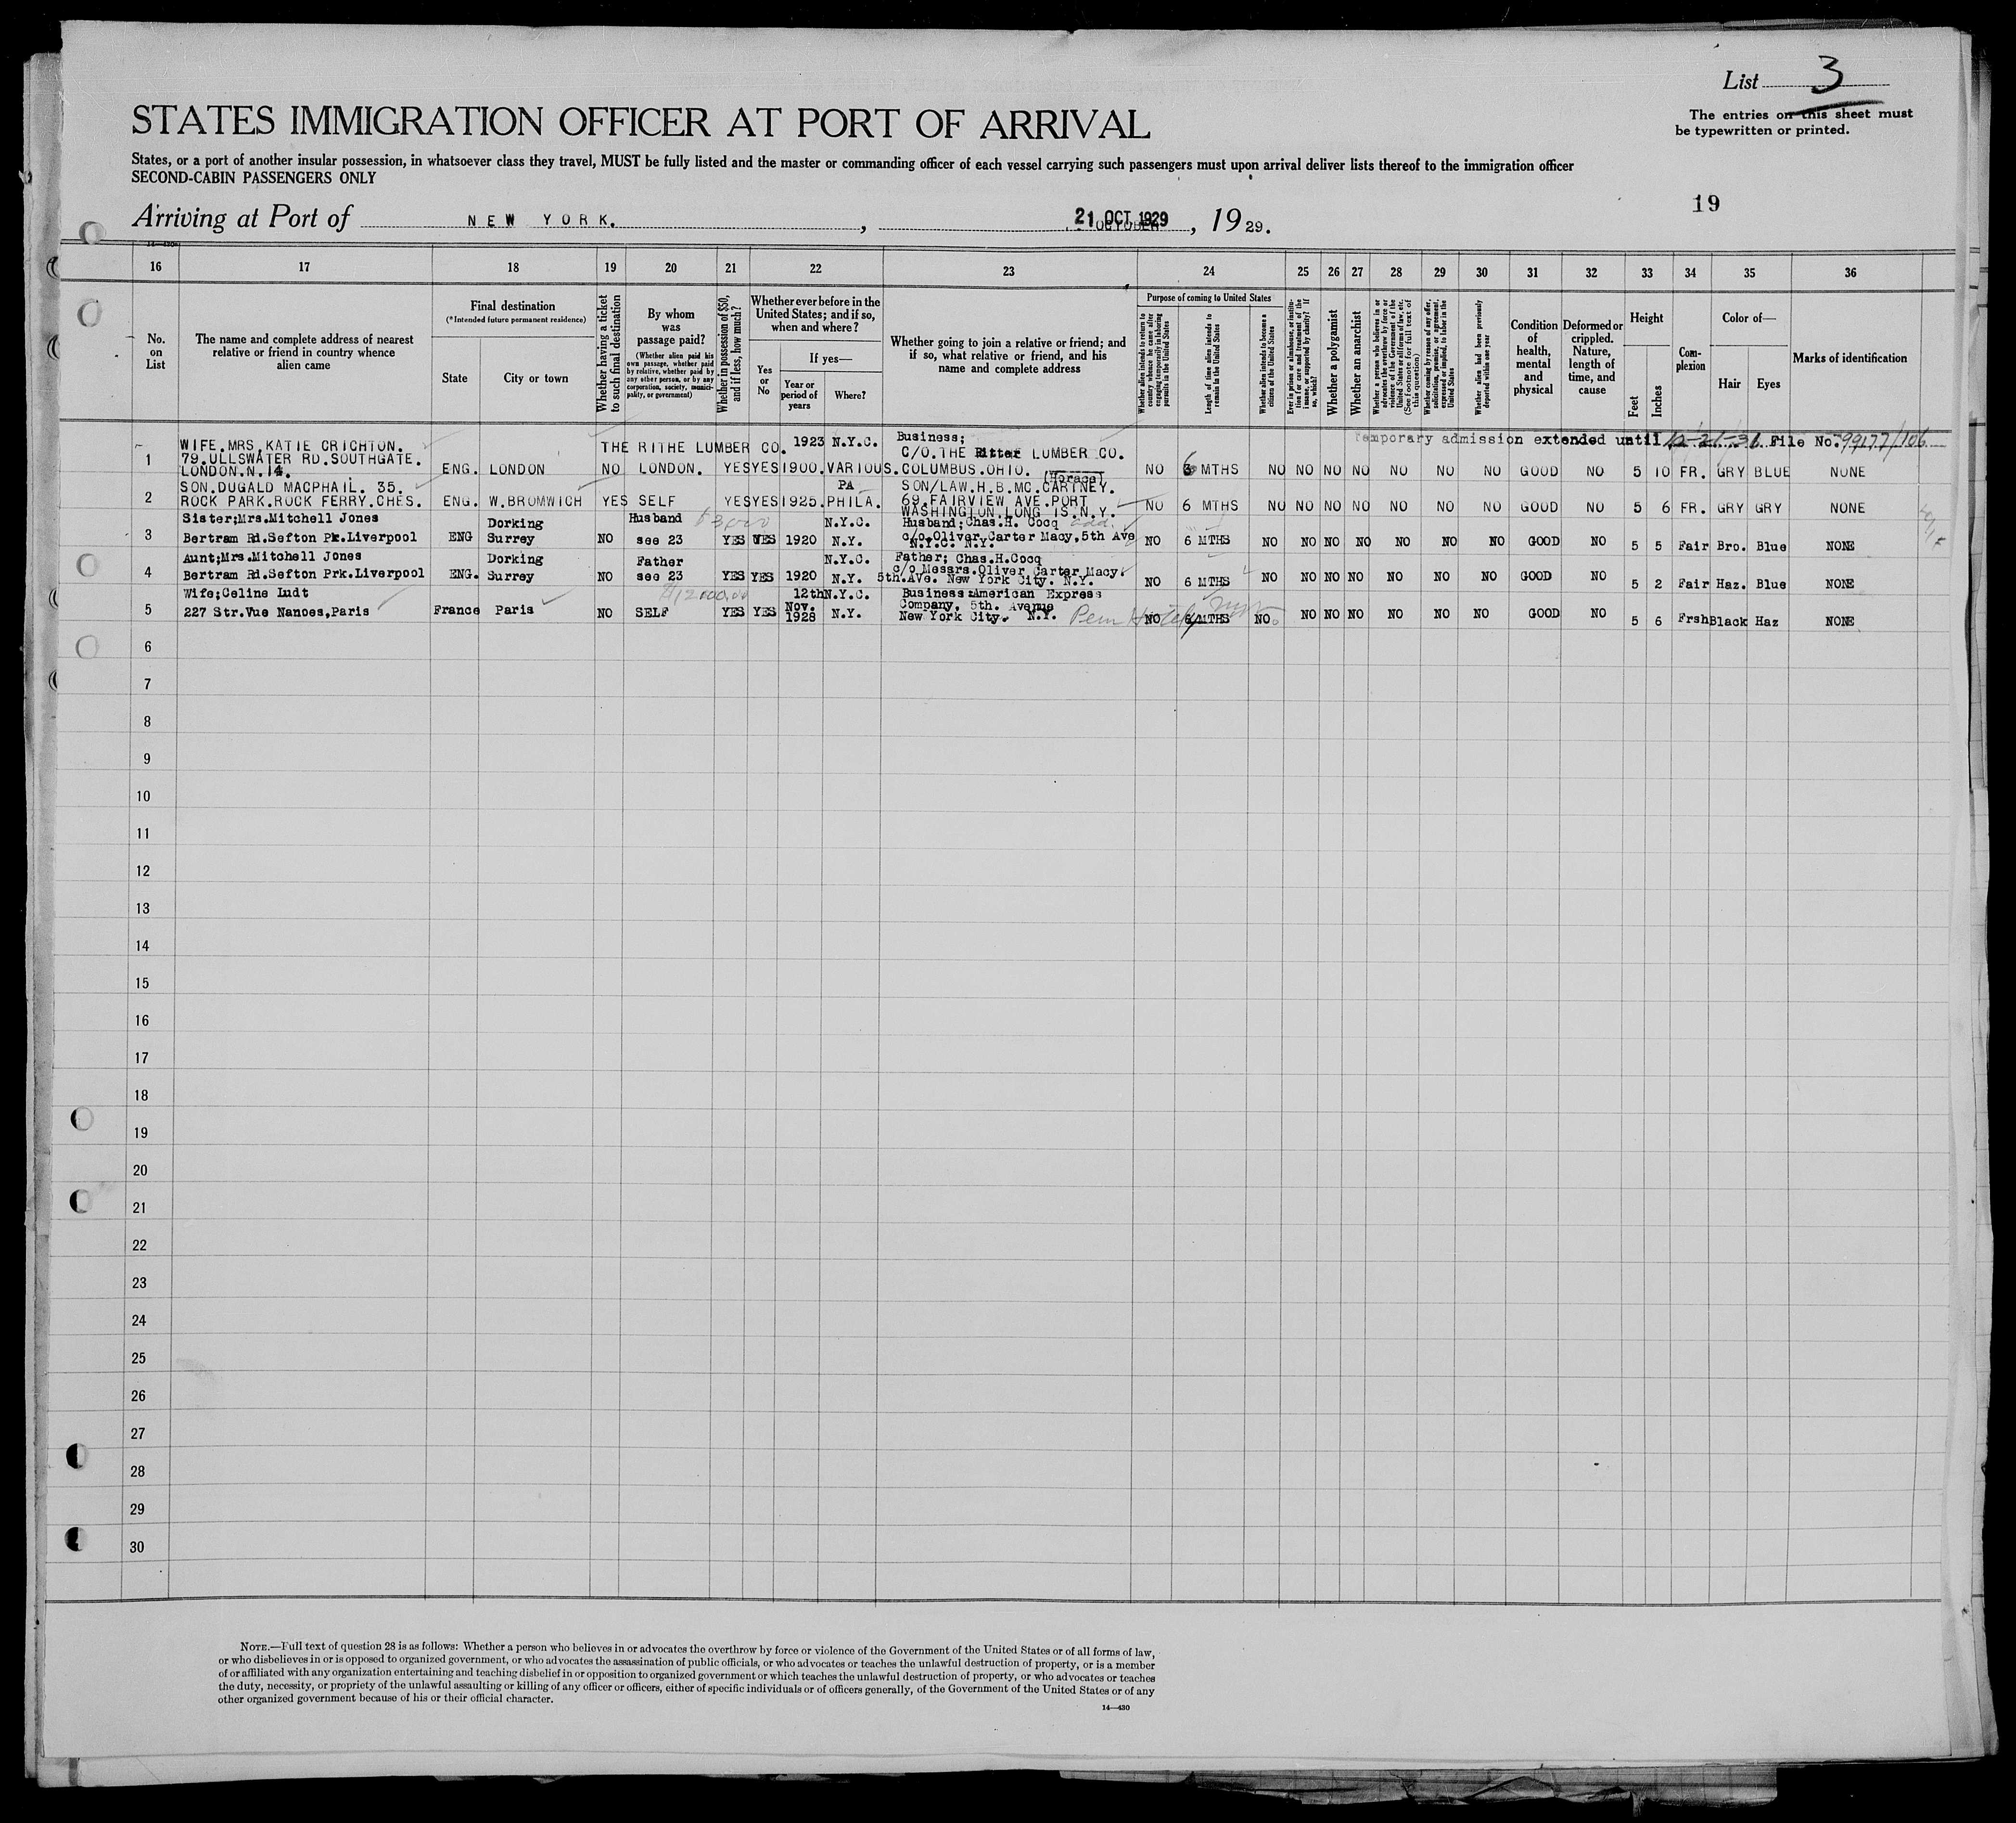 List 3
The entries on this sheet must
be typewritten or printed.
STATES IMMIGRATION OFFICER AT PORT OF ARRIVAL
States, or a port of another insular possession, in whatsoever class they travel, MUST be fully listed and the master or commanding officer of each vessel carrying such passengers must upon arrival deliver lists thereof to the immigration officer
SECOND-CABIN PASSENGERS ONLY
19
Arriving at Port of NEW YORK. , 21 OCT 1929 , 1929.
16 17 18 19 20 21 22 23 24 25 26 27 28 29 30 31 32 33 34 35 36
No. on List
The name and complete address of nearest relative or friend in country whence alien came
Final destination
(*Intended future permanent residence)
State
City or town
Whether having a ticket to such final destination
By whom was passage paid?
(Whether alien paid his own passage, whether paid by relative, whether paid by any other person, or by any corporation, society, municipality, or government)
Whether in possession of $50, and if less, how much?
Whether ever before in the United States; and if so, when and where?
Yes or No
If yes—
Year or period of years
Where?
Whether going to join a relative or friend; and if so, what relative or friend, and his name and complete address
Purpose of coming to United States
Whether alien intends to return to country whence he came after engaging temporarily in laboring pursuits in the United States
Length of time alien intends to remain in the United States
Whether alien intends to become a citizen of the United States
Ever in prison or almshouse, or institution for care and treatment of the insane, or supported by charity? If so, which?
Whether a polygamist
Whether an anarchist
Whether a person who believes in or advocates the overthrow by force or violence of the Government of the United States or all forms of law, etc. (See footnote for full text of this question)
Whether coming by reason of any offer, solicitation, promise, or agreement, expressed or implied, to labor in the United States
Whether alien had been previously deported within one year
Condition of health, mental and physical
Deformed or crippled. Nature, length of time, and cause
Height
Feet
Inches
Complexion
Color of—
Hair
Eyes
Marks of identification
Temporary admission extended until 10-21-31 File No. 99177/106
1 WIFE.MRS.KATIE CRICHTON. 79.ULLSWATER RD.SOUTHGATE. LONDON.N.14. ENG. LONDON NO THE RITHE LUMBER CO. LONDON. YES YES 1923 N.Y.C. 1900.VARIOUS. Business; C/O.THE Ritter LUMBER CO. COLUMBUS.OHIO. NO 6 MTHS NO NO NO NO NO NO NO GOOD NO 5 10 FR. GRY BLUE NONE
2 SON.DUGALD MACPHAIL. 35. ROCK PARK.ROCK FERRY.CHES. ENG. W.BROMWICH YES SELF YES YES 1925. PA PHILA. SON/LAW.H.B.MC.CARTNEY. (Horace) 69.FAIRVIEW AVE.PORT WASHINGTON.LONG IS.N.Y. NO 6 MTHS NO NO NO NO NO NO NO GOOD NO 5 6 FR. GRY GRY NONE
3 Sister;Mrs.Mitchell Jones Bertram Rd.Sefton Pk.Liverpool ENG Dorking Surrey NO Husband see 23 YES YES 1920 N.Y.C. N.Y. Husband;Chas.H. Cocq c/o.Oliver Carter Macy,5th Ave N.Y.C. N.Y. NO 6 MTHS NO NO NO NO NO NO NO GOOD NO 5 5 Fair Bro. Blue NONE
4 Aunt;Mrs.Mitchell Jones Bertram Rd.Sefton Prk.Liverpool ENG. Dorking Surrey NO Father see 23 YES YES 1920 N.Y.C. N.Y. Father; Chas.H.Cocq c/o Messrs.Oliver Carter Macy. 5th.Ave. New York City. N.Y. NO 6 MTHS NO NO NO NO NO NO NO GOOD NO 5 2 Fair Haz. Blue NONE
5 Wife;Celine Ludt 227 Str.Vue Nanoes,Paris France Paris NO SELF YES YES 12th Nov. 1928 N.Y.C. N.Y. Business American Express Company, 5th. Avenue New York City. N.Y. Penn Hotel NO 6 MTHS NO NO NO NO NO NO NO GOOD NO 5 6 Frsh Black Haz NONE
6
7
8
9
10
11
12
13
14
15
16
17
18
19
20
21
22
23
24
25
26
27
28
29
30
NOTE.—Full text of question 28 is as follows: Whether a person who believes in or advocates the overthrow by force or violence of the Government of the United States or of all forms of law,
or who disbelieves in or is opposed to organized government, or who advocates the assassination of public officials, or who advocates or teaches the unlawful destruction of property, or is a member
of or affiliated with any organization entertaining and teaching disbelief in or opposition to organized government or which teaches the unlawful destruction of property, or who advocates or teaches
the duty, necessity, or propriety of the unlawful assaulting or killing of any officer or officers, either of specific individuals or of officers generally, of the Government of the United States or of any
other organized government because of his or their official character.
14—430